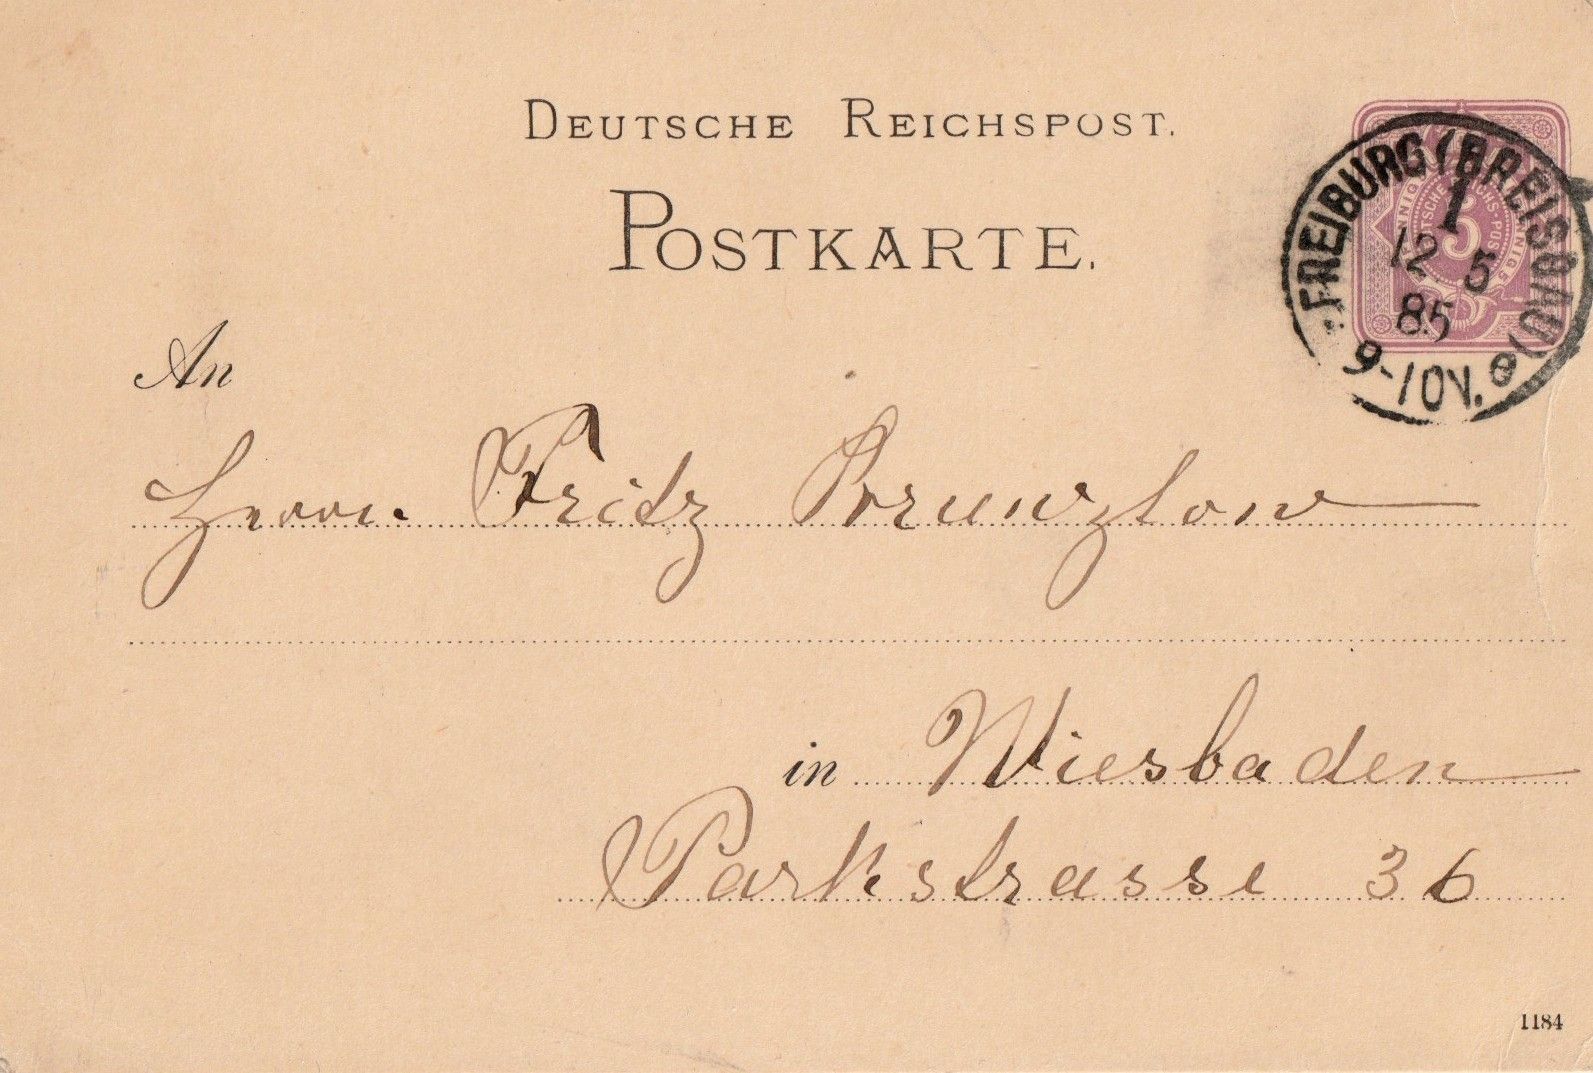 DEUTSCHE REICHSPOST.
POSTKARTE.
FREIBURG (BREISGAU)
1
12 5
85
9-10V.
5
An
Herrn. Fritz Prunzlow
in Wiesbaden
Parkstrasse 36
1184